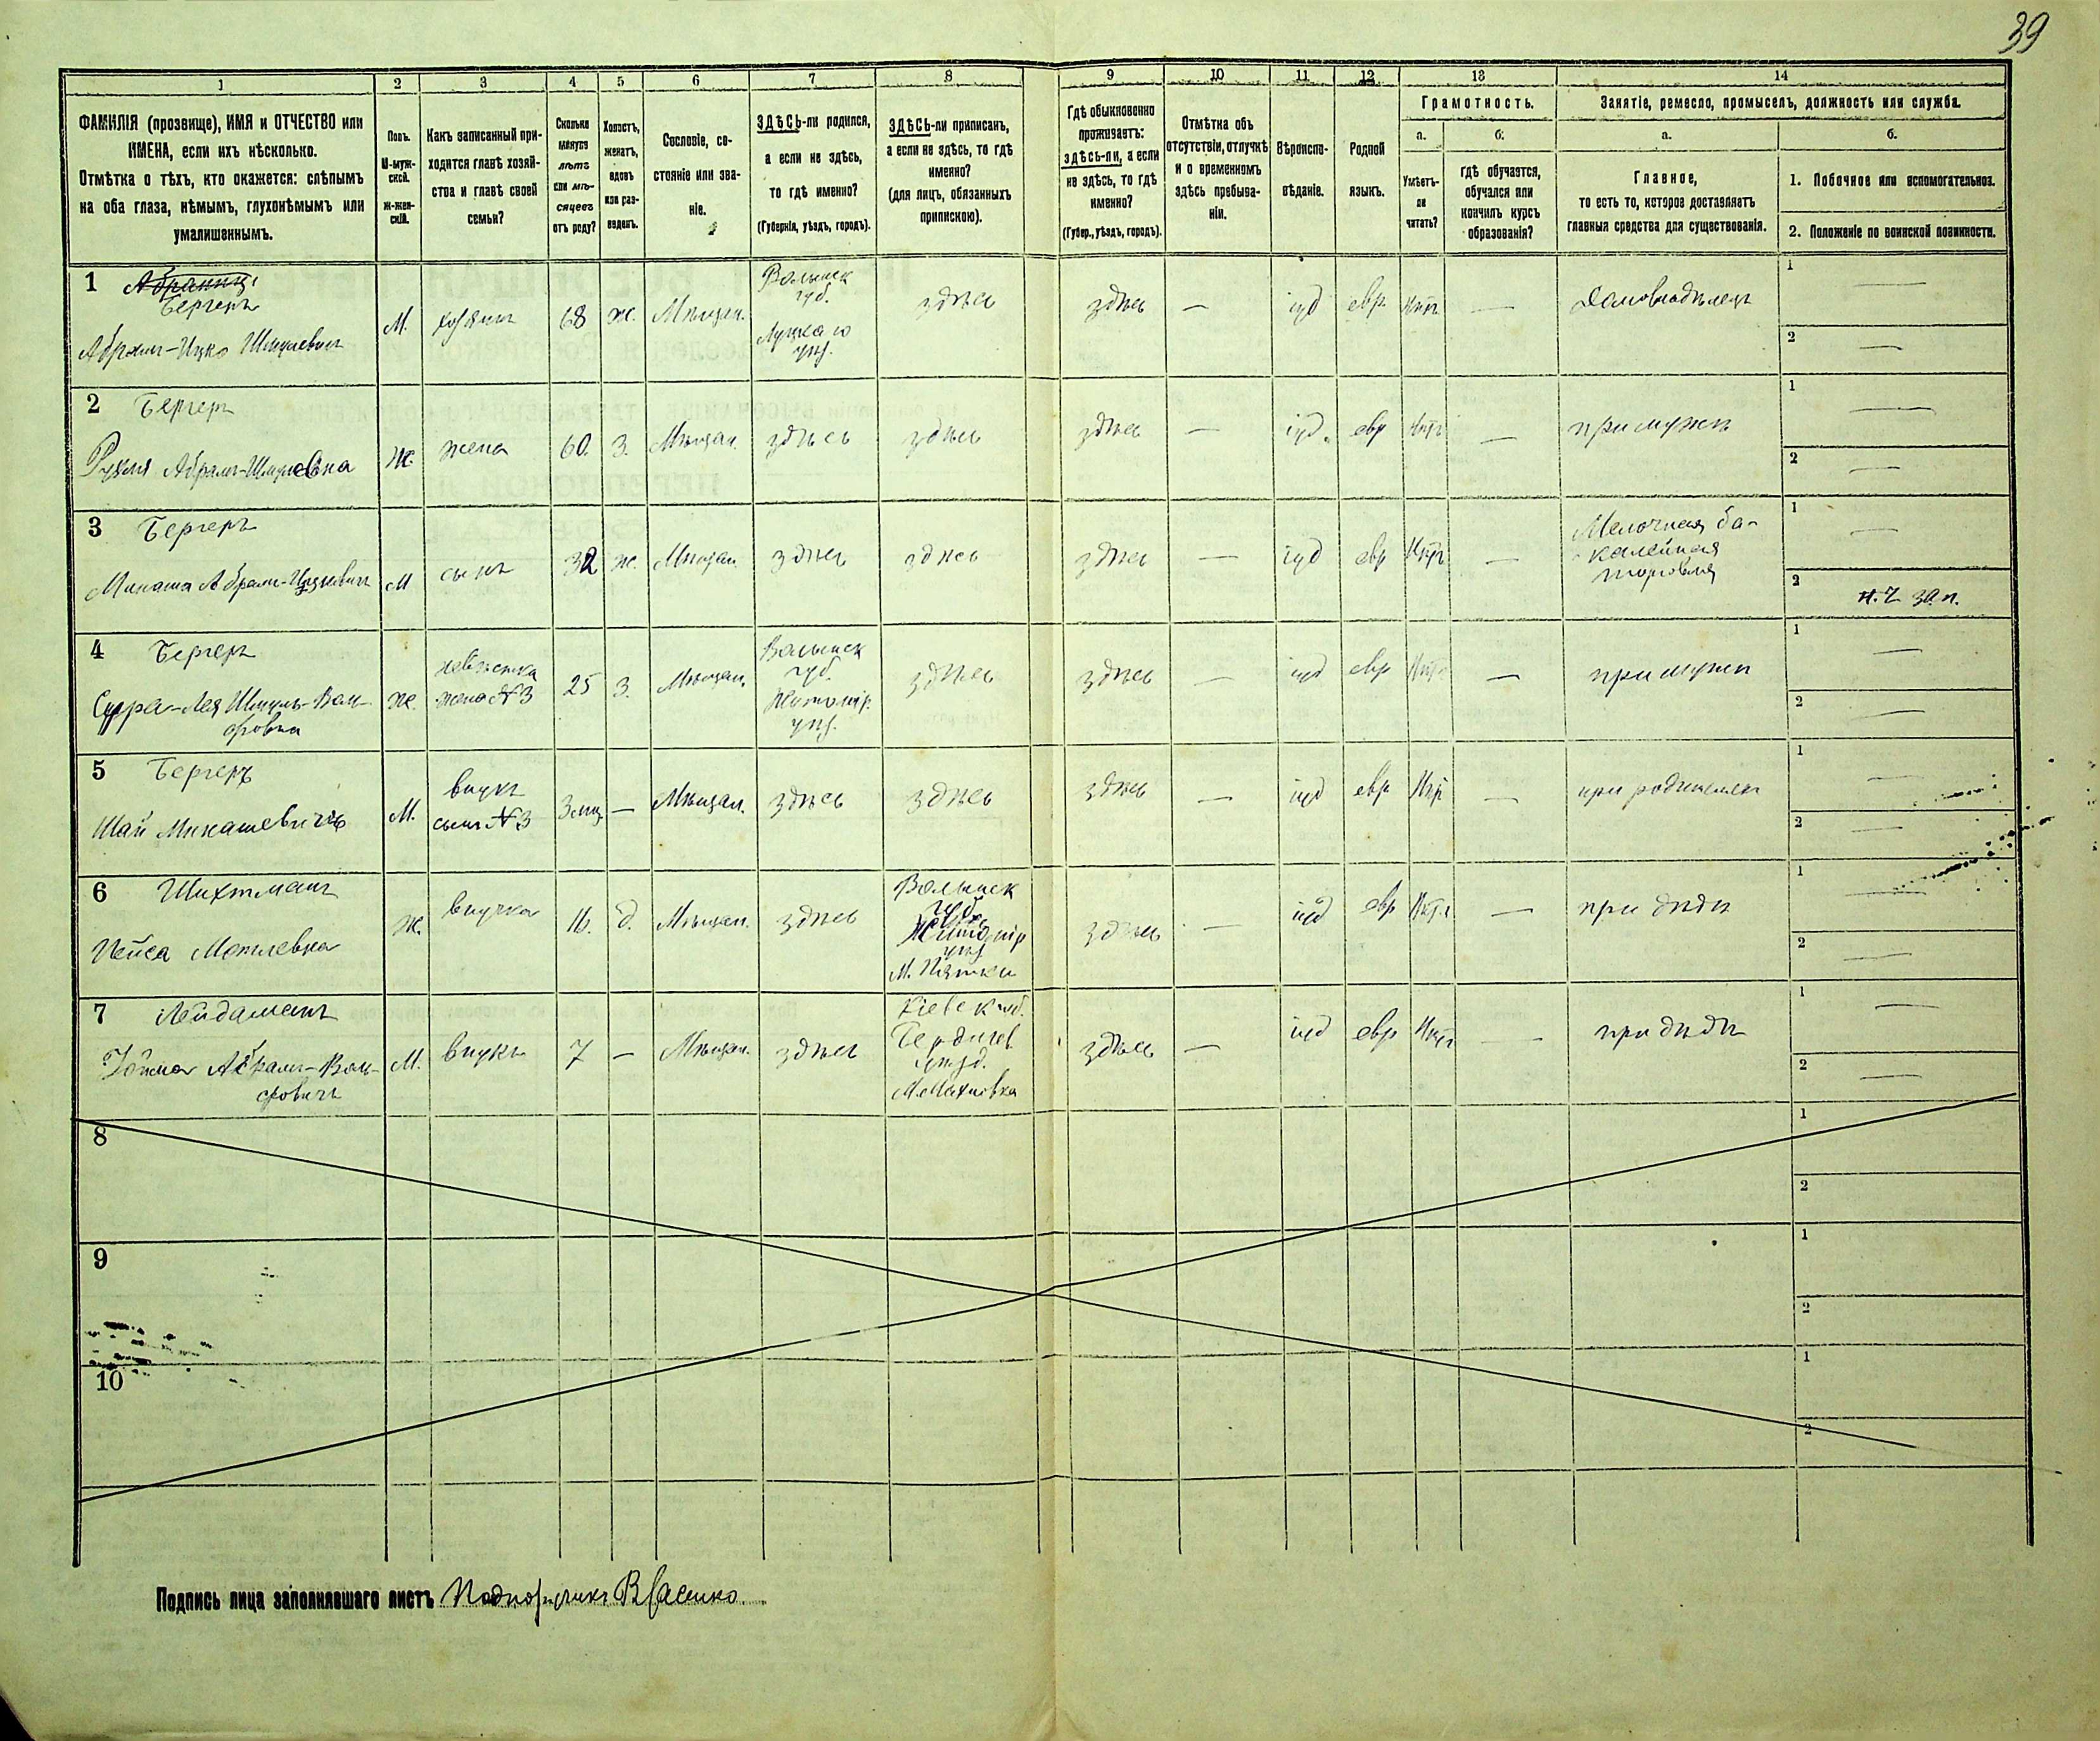 39
1 2 3 4 5 6 7 8 9 10 11 12 13 14
ФАМИЛІЯ (прозвище), ИМЯ и ОТЧЕСТВО или
ИМЕНА, если ихъ нѣсколько.
Отмѣтка о тѣхъ, кто окажется: слѣпымъ
на оба глаза, нѣмымъ, глухонѣмымъ или
умалишеннымъ.
Полъ.
М-муж-
ской.
Ж-жен-
скій.
Какъ записанный при-
ходится главѣ хозяй-
ства и главѣ своей
семьи?
Сколько
минуло
лѣтъ
или мѣ-
сяцевъ
отъ роду?
Холостъ,
женатъ,
вдовъ
или раз-
веденъ.
Сословіе, со-
стояніе или зва-
ніе.
ЗДѢСЬ-ли родился,
а если не здѣсь,
то гдѣ именно?
(Губернія, уѣздъ, городъ).
ЗДѢСЬ-ли приписанъ,
а если не здѣсь, то гдѣ
именно?
(для лицъ, обязанныхъ
припискою).
Гдѣ обыкновенно
проживаетъ:
здѣсь-ли, а если
не здѣсь, то гдѣ
именно?
(Губер., уѣздъ, городъ).
Отмѣтка объ
отсутствіи, отлучкѣ
и о временномъ
здѣсь пребыва-
ніи.
Вѣроиспо-
вѣданіе.
Родной
языкъ.
Грамотность.
а.
Умѣетъ-
ли
читать?
б.
гдѣ обучается,
обучался или
кончилъ курсъ
образованія?
Занятіе, ремесло, промыселъ, должность или служба.
а.
Главное,
то есть то, которое доставляетъ
главныя средства для существованія.
б.
1. Побочное или вспомогательное.
2. Положеніе по воинской повинности.
1 Бергеръ
Абрамъ-Ицко Шмулевичъ
М.
хозяинъ
68
ж.
Мѣщан.
Волынск
губ.
Луцкаго
уѣз.
здѣсь
здѣсь
—
іуд
евр
—
домовладѣлецъ
1 —
2 —
2 Бергеръ
Абрамъ-Шмулевна
Ж.
жена
60.
З.
Мѣщан.
здѣсь
здѣсь
здѣсь
—
іуд.
евр
—
при мужѣ
1 —
2 —
3 Бергеръ
Абрам-Ицковичъ
М
сынъ
32
ж.
Мѣщан.
здѣсь
здѣсь
здѣсь
—
іуд
евр
—
Мелочная ба-
калейная
торговля
1 —
2
4 Бергеръ
Сурра-Лея Шмуль-Воль-
фовна
ж.
невѣстка
жена №3
25
З.
Мѣщан.
Волынск
губ.
Житомір.
уѣз.
здѣсь
здѣсь
—
іуд
евр
—
при мужѣ
1 —
2 —
5 Бергеръ
Шай Минашевичъ
М.
внукъ
сынъ №3
3 мѣц
—
Мѣщан.
здѣсь
здѣсь
здѣсь
—
іуд
евр
—
при родителяхъ
1
2 —
6 Шихтманъ
Пейса Мотлевна
Ж.
внучка
16.
д.
Мѣщан.
здѣсь
Волынск
губ.
Житомір
уѣз
м. Пятки
здѣсь
—
іуд
евр
—
при дѣдѣ
1 —
2 —
7 Лейдаманъ
Абрамъ-Воль-
фовичъ
М.
внукъ
7
—
Мѣщан.
здѣсь
Кіевск губ.
Бердичев
уѣзд.
М. Махновка
здѣсь
—
іуд
евр
—
при дѣдѣ
1 —
2 —
8
1
2
9
1
2
10
1
2
Подпись лица заполнявшаго листъ